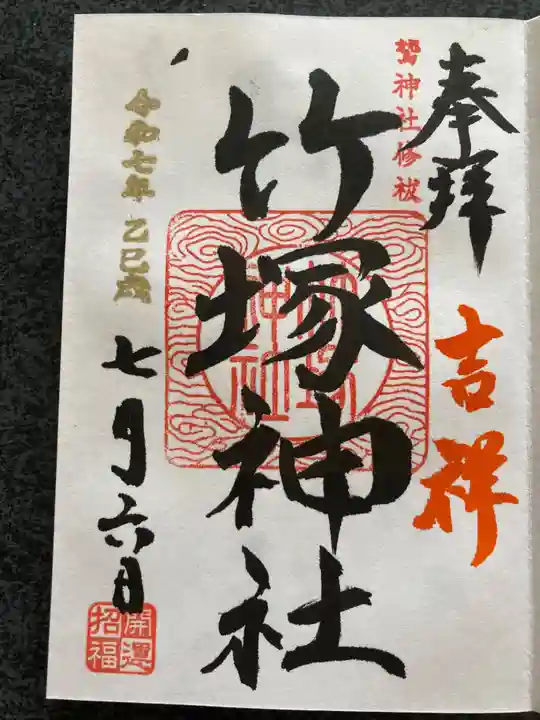 奉拝
吉祥
鷲神社修祓
竹塚神社
竹塚神社
令和七年 乙巳歳
七月六日
開運招福